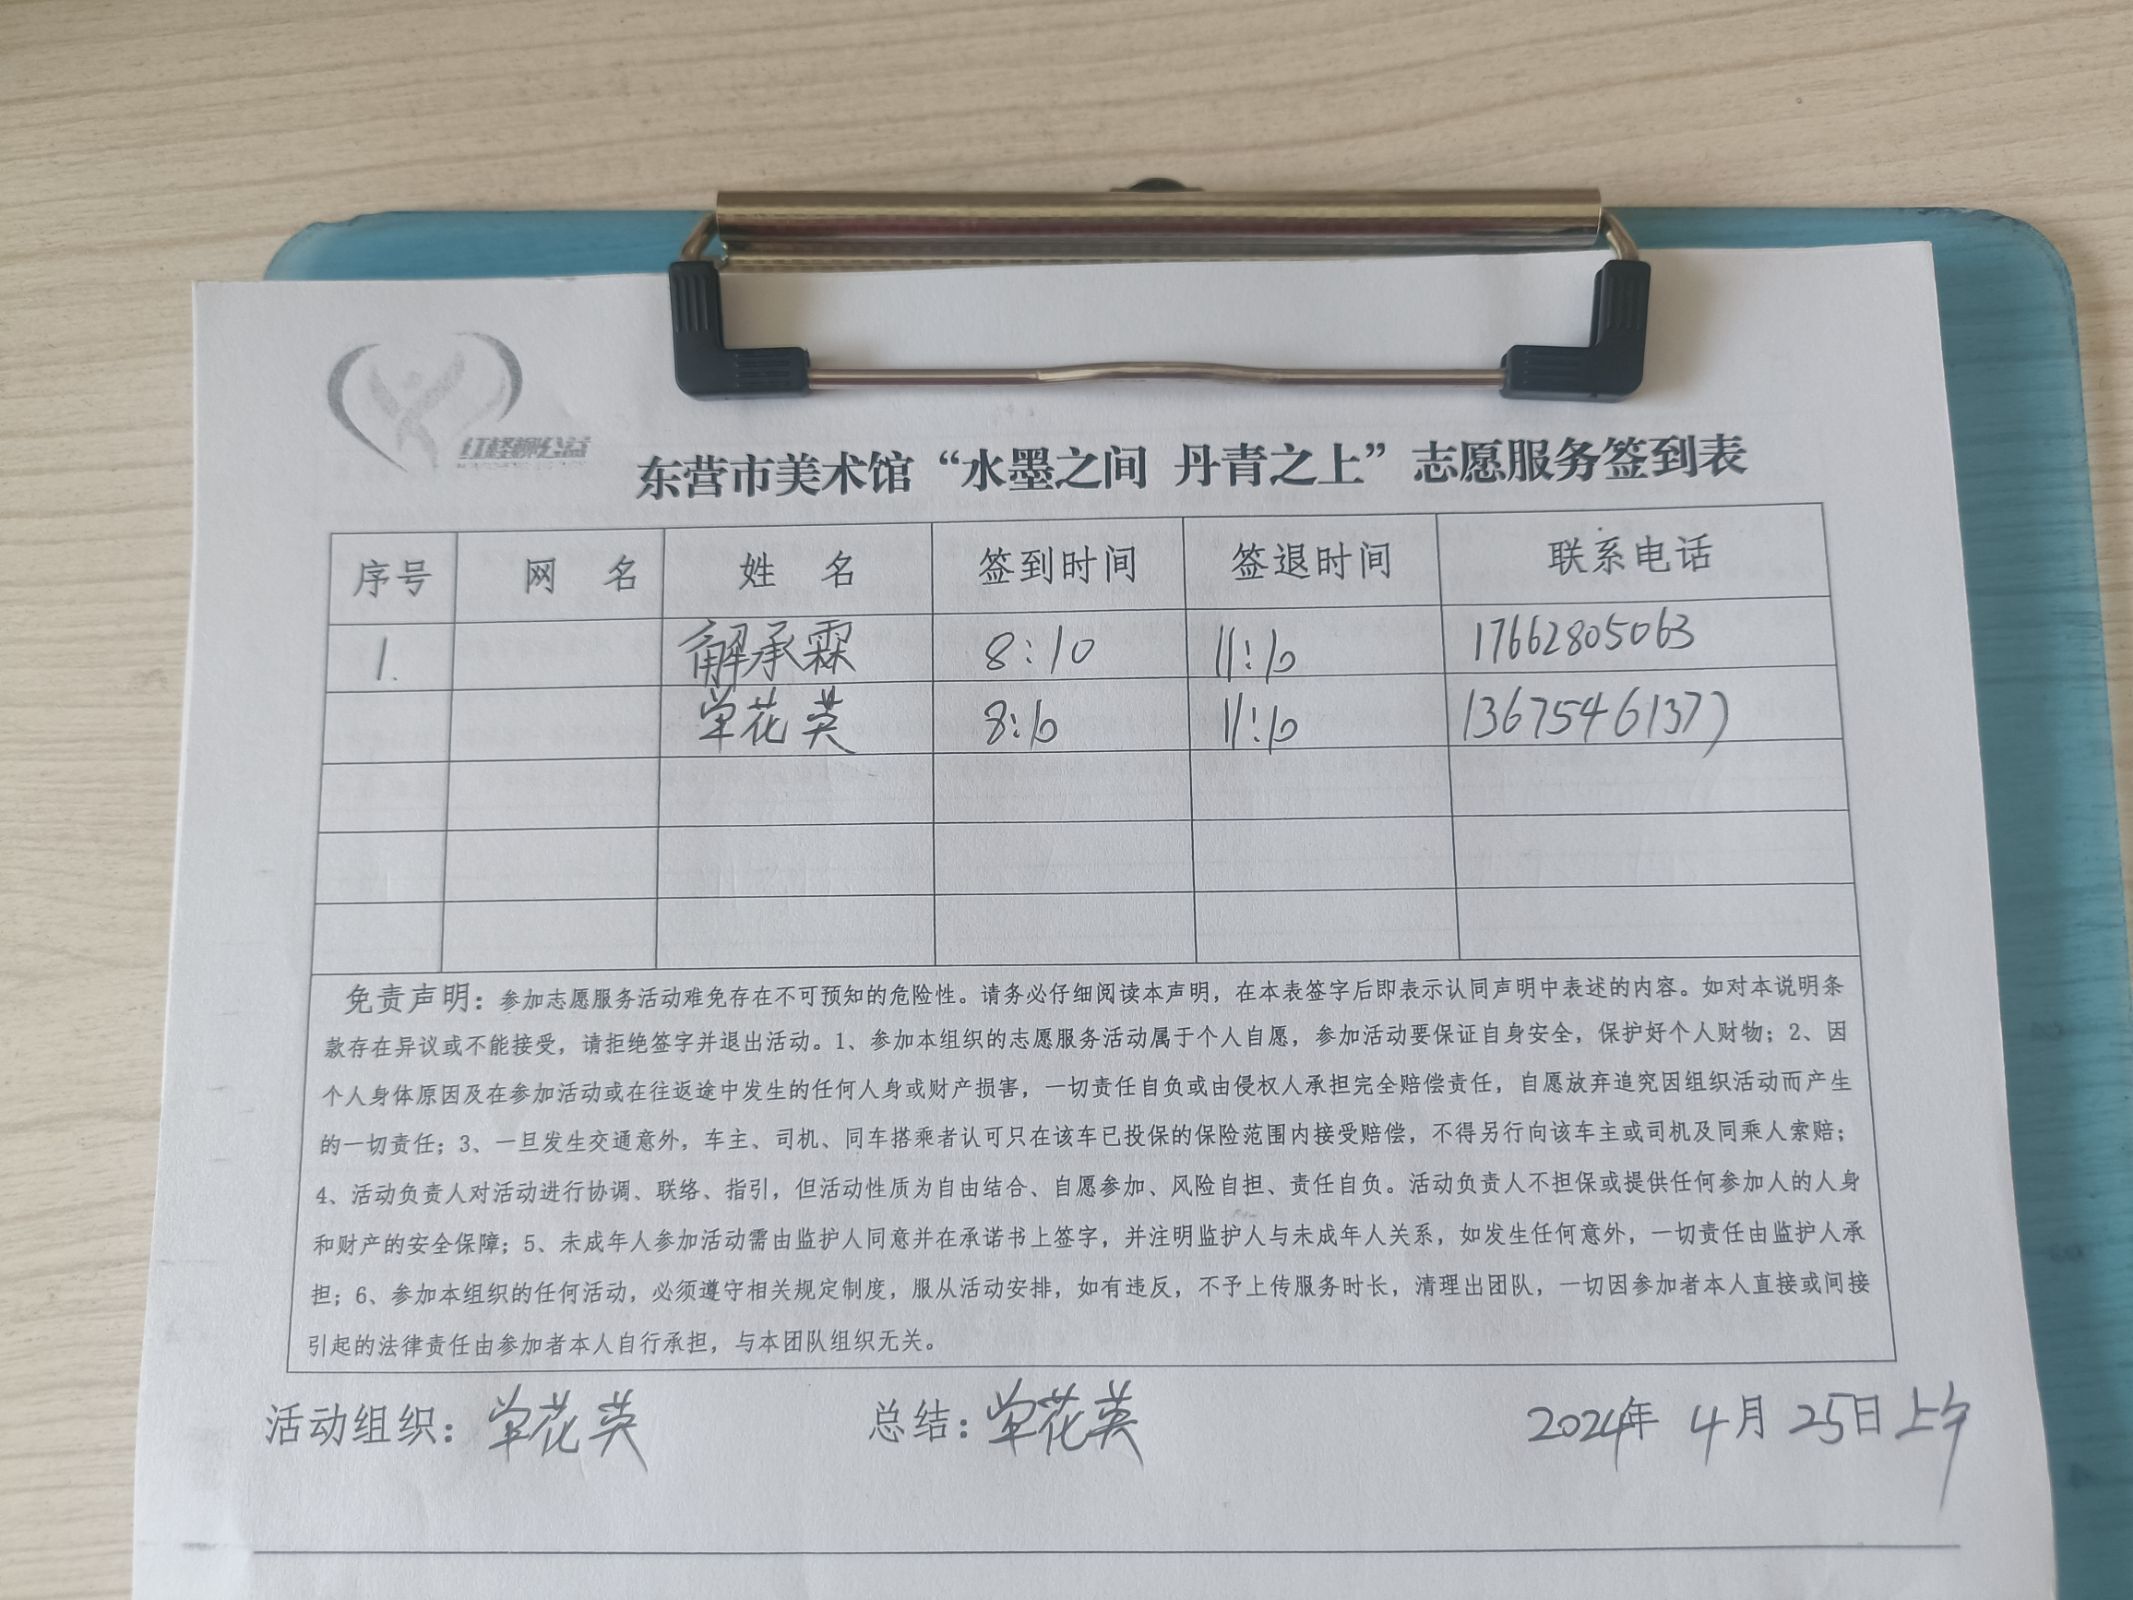 红柽柳公益
东营市美术馆“水墨之间 丹青之上”志愿服务签到表
序号 网 名 姓 名 签到时间 签退时间 联系电话
1. 解承霖 8:10 11:10 17662805063
单花英 8:10 11:10 13675461377
免责声明：参加志愿服务活动难免存在不可预知的危险性。请务必仔细阅读本声明，在本表签字后即表示认同声明中表述的内容。如对本说明条
款存在异议或不能接受，请拒绝签字并退出活动。1、参加本组织的志愿服务活动属于个人自愿，参加活动要保证自身安全，保护好个人财物；2、因
个人身体原因及在参加活动或在往返途中发生的任何人身或财产损害，一切责任自负或由侵权人承担完全赔偿责任，自愿放弃追究因组织活动而产生
的一切责任；3、一旦发生交通意外，车主、司机、同车搭乘者认可只在该车已投保的保险范围内接受赔偿，不得另行向该车主或司机及同乘人索赔；
4、活动负责人对活动进行协调、联络、指引，但活动性质为自由结合、自愿参加、风险自担、责任自负。活动负责人不担保或提供任何参加人的人身
和财产的安全保障；5、未成年人参加活动需由监护人同意并在承诺书上签字，并注明监护人与未成年人关系，如发生任何意外，一切责任由监护人承
担；6、参加本组织的任何活动，必须遵守相关规定制度，服从活动安排，如有违反，不予上传服务时长，清理出团队，一切因参加者本人直接或间接
引起的法律责任由参加者本人自行承担，与本团队组织无关。
活动组织：单花英 总结：单花英 2024年 4月 25日上午